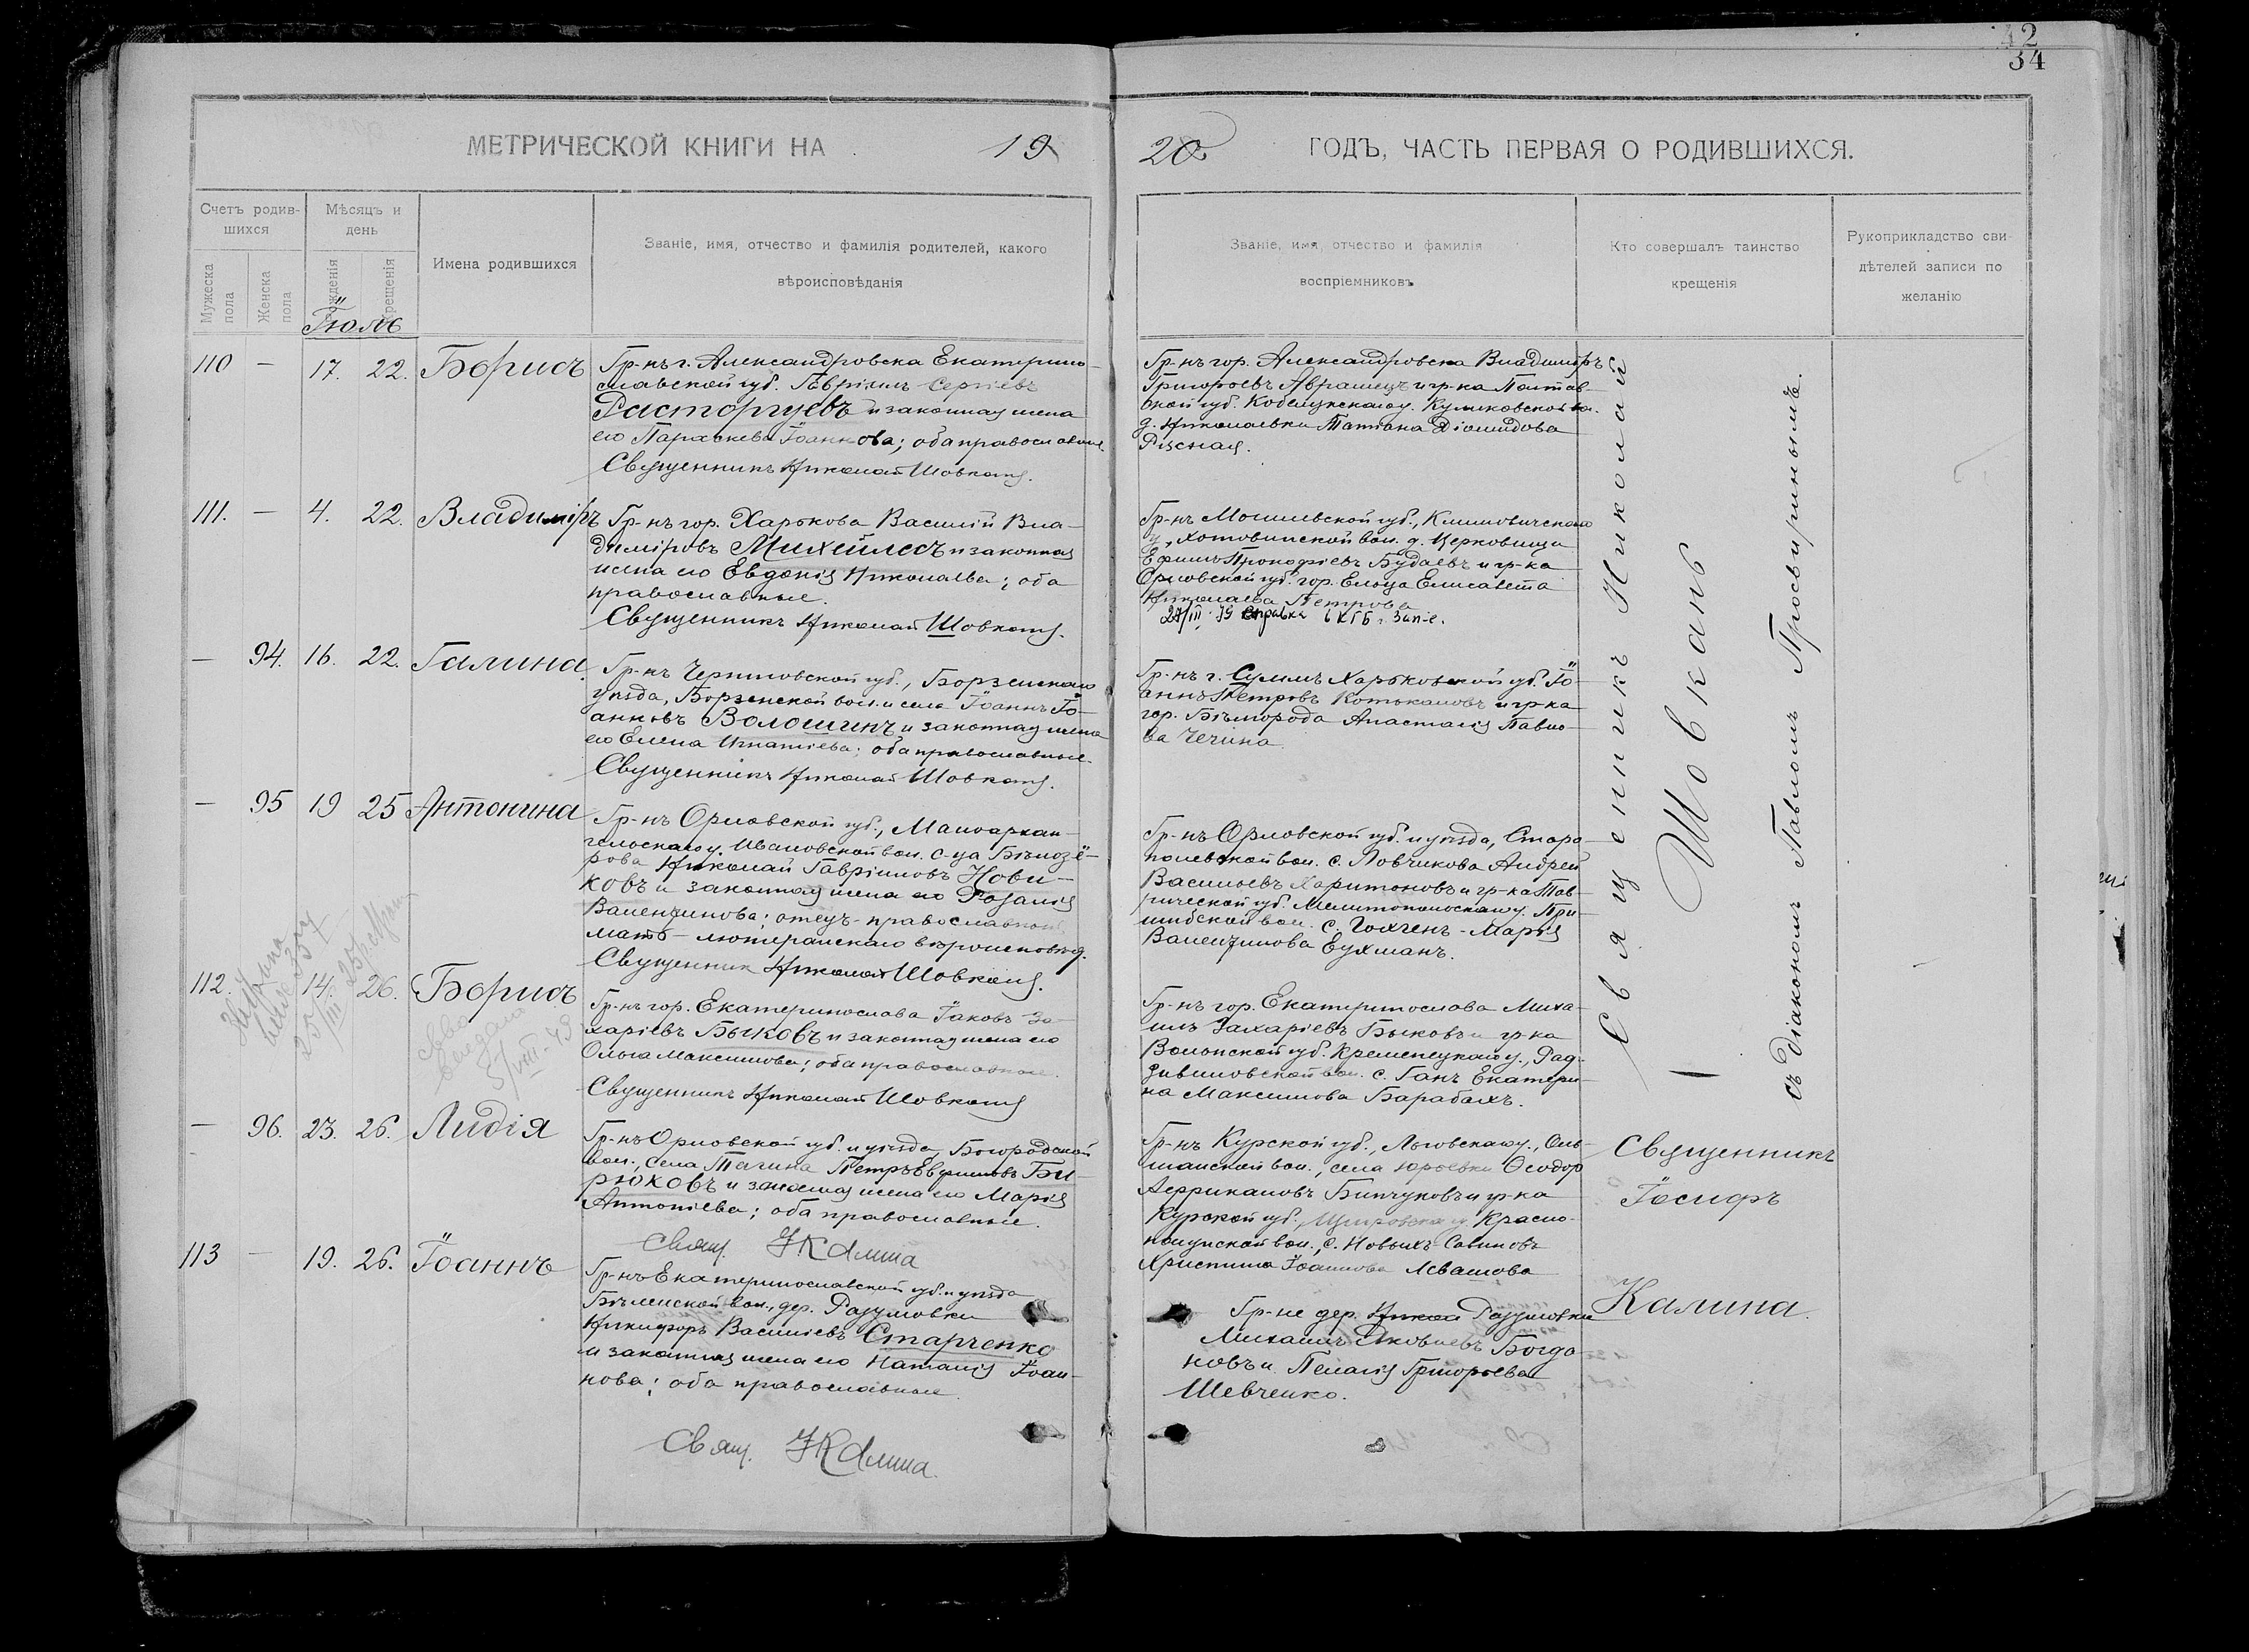 42
34
МЕТРИЧЕСКОЙ КНИГИ НА 19
20 ГОДЪ, ЧАСТЬ ПЕРВАЯ О РОДИВШИХСЯ.
Счетъ родив-
шихся
Мужеска
пола
Женска
пола
Мѣсяцъ и
день
рожденія
крещенія
Имена родившихся
Званіе, имя, отчество и фамилія родителей, какого
вѣроисповѣданія
Званіе, имя, отчество и фамилія
воспріемниковъ
Кто совершалъ таинство
крещенія
Рукоприкладство сви-
дѣтелей записи по
желанію
Іюль
110 — 17. 22. Борисъ
Гр-нъ г. Александровска Екатерино-
славской губ. Гавріилъ Сергіевъ
Расторгуевъ и законная жена
его Параскева Іоаннова; оба православные.
Священникъ Николай Шовкань.
Гр-нъ гор. Александровска Владиміръ
Григорьевъ Аврамецъ и гр-ка Полтав-
ской губ. Кобелякскаго у. Куликовской во.
д. Николаевки Татіана Діомидова
111. — 4. 22. Владиміръ
Гр-нъ гор. Харькова Василій Вла-
диміровъ Михейлесъ и законная
жена его Евдокія Николаева; оба
православные.
Священникъ Николай Шовкань.
Гр-нъ Могилевской губ., Климовичскаго
у., Хотовинской вол. д. Церковища
Ефимъ Прокофіевъ Будаевъ и гр-ка
Орловской губ. гор. Ельца Елисавета
Николаева Петрова
— 94. 16. 22. Галина.
Гр-нъ Черниговской губ., Борзенскаго
уѣзда, Борзенской вол. и села Іоаннъ Іо-
анновъ Волошинъ и законная жена
его Елена Игнатіева; оба православные.
Священникъ Николай Шовкань.
Гр-нъ г. Сумъ Харьковской губ. Іо-
аннъ Петровъ и гр-ка
гор. Бѣлгорода Анастасія Павло-
ва Чечина
— 95 19 25 Антонина
Гр-нъ Орловской губ., Малоархан-
гельскаго у. Ивановской вол. с-ца Бѣлозё-
рова Николай Гавріиловъ Нови-
ковъ и законная жена его Розалія
Валентинова; отецъ- православной
мать - лютеранскаго вѣроисповѣд.
Священник Николай Шовкань.
Гр-нъ Орловской губ. и уѣзда, Старо-
полевской вол. с. Ловчикова Андрей
Васильевъ Харитоновъ и гр-ка Тав-
рической губ. Мелитопольскаго у. При-
шибской вол. с. Гохгенъ - Марія
Валентинова Еухманъ.
112. 14. 26. Борисъ
Гр-нъ гор. Екатеринослава Іаковъ За-
харіевъ Быковъ и законная жена его
Ольга Максимова; оба православные.
Священникъ Николай Шовкань
Гр-нъ гор. Екатеринослава Миха-
илъ Захаріевъ Быковъ и гр-ка
Волынской губ. Кременецкаго у., Рад-
зивиловской вол. с. Ганъ Екатери-
на Максимова Барабахъ.
— 96. 23. 26. Лидія
Гр-нъ Орловской губ. и уѣзда, Богородской
вол., села Тагина Петръ Евфимовъ Би-
рюковъ и законная жена его Марія
Антоніева; оба православные.
Свящ. І Калина
Гр-нъ Курской губ., Льговскаго у., Оль-
шанской вол., села Юрьевки Ѳеодор
Курской губ., Щигровскаго у. Красно-
полянской вол., с. Новыхъ Савиновъ
Христина Іоаннова Левашова
113 — 19. 26. Іоаннъ
Гр-нъ Екатеринославской губ. и уѣзда
Бѣленской вол., дер. Разумовки
Никифоръ Василіевъ Старченко
и законная жена его Наталія Іоан-
нова; оба православные.
Свящ. І Калина.
Гр-не дер. Разумовки
Михаилъ Яковлевъ Богда-
новъ и Пелагія Григорьева
Шевченко.
Священникъ Николай
Шовкань
съ діакономъ Павломъ Просвиринымъ.
Священникъ
Іосифъ
Калина.